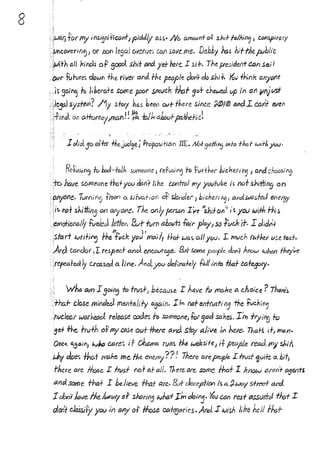 8
war, for my insignificant, piddly ass. No amount of shit talking, conspiracy
uncovering, or non legal overuse can save me. Debby has hit the public
with all kinds of good shit and yet here I sit. The president can sail
our futures down the river and the people don't do shit. You think anyone
is going to liberate some poor smuck that got chewed up in an unjust
legal system? My story has been out there since 2010 and I can't even
find an attorney, man!! talk about pathetic!
I did go after the judge; Proposition III. Not getting into that with you.
Refusing to bad-talk someone, refusing to further bickering, and choosing
to have someone that you don't like control my youtube is not shitting on
anyone. Turning from a situation of slander, bickering, and wasted energy
is not shitting on anyone. The only person I've "shit on" is you with this
emotionally fueled letter. But turn abouts fair play, so fuck it. I didn't
start writing the "fuck you" mail; that was all you. I much rather use tact.
And condor, I respect and encourage. But some people don't know when they've
repeatedly crossed a line. And, you definately fall into that category.
Who am I going to trust, because I have to make a choice? There's
that close minded mentality again. I'm not entrusting the fucking
nuclear warhead release codes to someone, for god sakes. I'm trying to
get the truth of my case out there and stay alive in here. That's it, man.
Once again, who cares if Obama runs the website, if people read my shit,
why does that make me the enemy??! There are people I trust quite a bit,
there are those I trust not at all. There are some that I know aren't agents
and some that I believe that are. But deception is a 2 way street and
I don't have the luxury of sharing what I'm doing. You can rest assured that I
don't classify you in any of those categories. And I wish like hell that